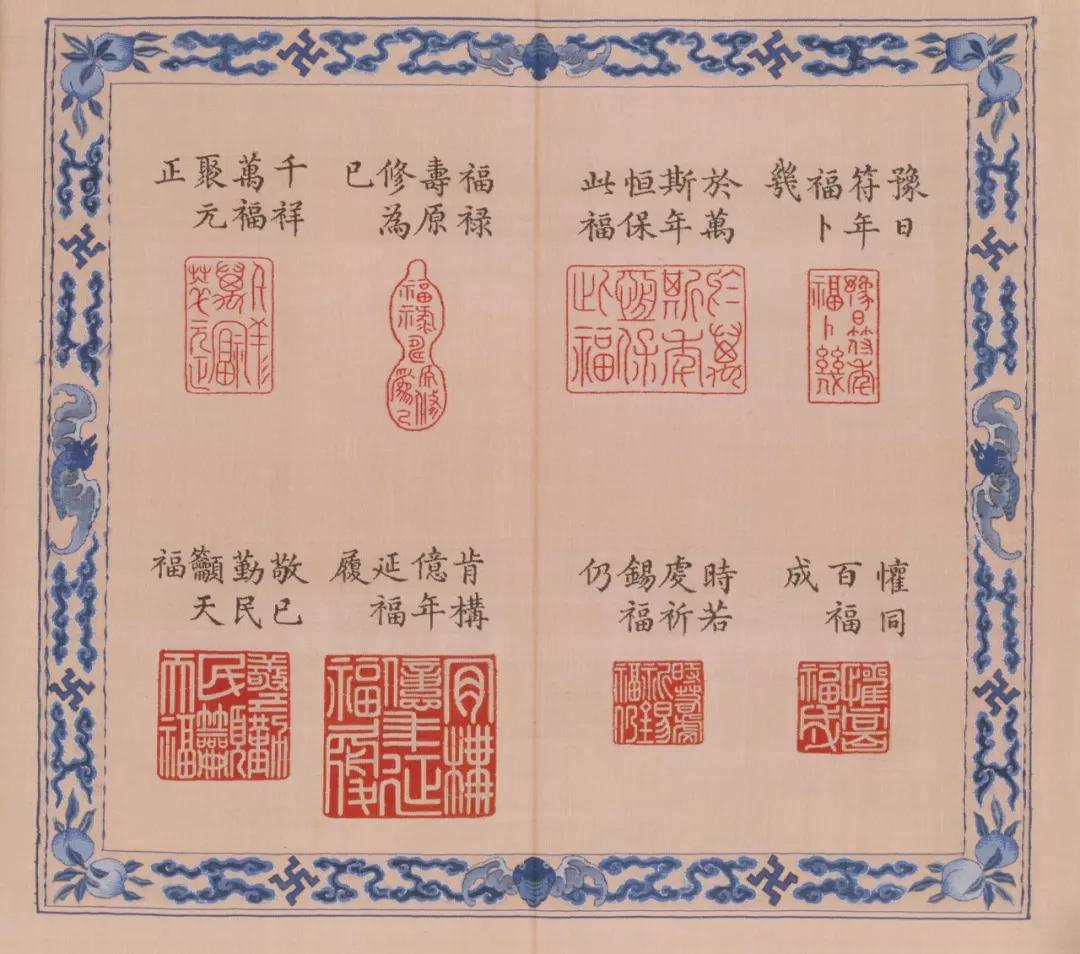 豫日
符年
福卜
幾
於萬
斯年
恒保
此福
福禄
壽原
修為
已
千祥
萬福
聚元
正
懽同
百福
成
時若
處祈
錫福
仍
肯構
億年
延福
履
敬已
勤民
籲天
福